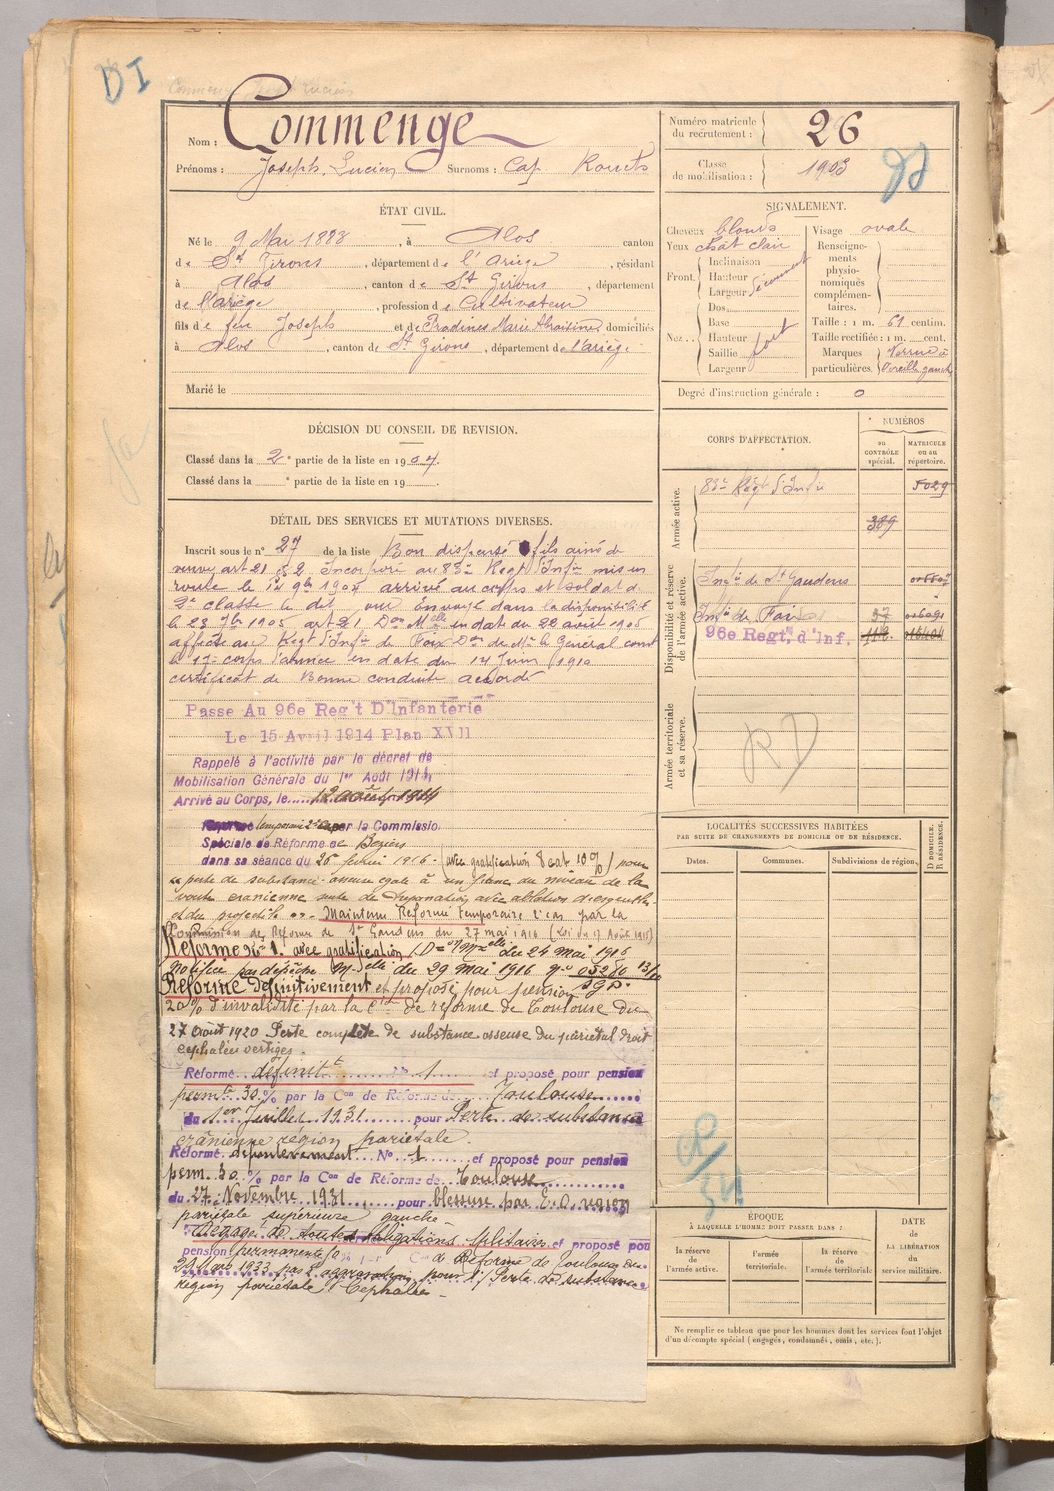 DI
Nom : Commenge
Prénoms : Joseph Lucien Surnoms : Cap Roucts
Numéro matricule
du recrutement : 26
Classe
de mobilisation : 1903
ÉTAT CIVIL.
Né le 9 Mai 1883, à Alos canton
de St Girons, département de l'Ariège, résidant
à Alos, canton de St Girons, département
de l'ariège, profession de Cultivateur
fils de feu Joseph et de Pradines Marie domiciliés
à Alos, canton de St Girons, département de l'ariège
Marié le
SIGNALEMENT.
Cheveux blonds Visage ovale
Yeux chât clair
Front. Inclinaison
Hauteur
Largeur
Nez.. Dos
Base
Hauteur fort
Saillie
Largeur
Renseigne-
ments
physio-
nomiques
complémen-
taires.
Taille : 1 m. 61 centim.
Taille rectifiée : 1 m. cent.
Marques
particulières. Verrue à
Oreille gauche
Degré d'instruction générale : 0
DÉCISION DU CONSEIL DE REVISION.
Classé dans la 2e partie de la liste en 1904.
Classé dans la e partie de la liste en 19
DÉTAIL DES SERVICES ET MUTATIONS DIVERSES.
Inscrit sous le n° 27 de la liste Bon dispensé fils ainé de
veuve art 21 § 2 Incorporé au 83e Regt d'Infie mis en
route le 14 9bre 1904 arrivé au corps et soldat de
2e classe le dit jour Envoyé dans la disponibilité
le 23 7bre 1905 art 21 Don Mlle en date du 22 août 1905
affecté au Régt d'Infie de Foix Don de Mr le Général comt
le 17e corps d'armée en date du 14 Juin 1910
certificat de Bonne conduite accordé
Passe Au 96e Reg't D'Infanterie
Le 15 Avril 1914 Plan XVII
Rappelé à l'activité par le décret de
Mobilisation Générale du 1er Août 1914,
Arrivé au Corps, le 12 août 1914
Réformé temporaire 2e par la Commission
Spéciale de Réforme de Beziers
dans sa séance du 26 février 1916 - (avec gratification 8 cat 10%) pour
perte de substance osseuse égale à un franc du niveau de la
voute cranienne suite de trépanation avec ablation d'esquilles
et du projectile — Maintenu Réformé temporaire 1° cas par la
Commission de Réforme de St Gaudens du 27 mai 1916 (Loi du 17 Août 1915)
Réforme N° 1. avec gratification (Don Mlle du 24 mai 1916
Notifiée par dépêche Mlle du 29 Mai 1916 N° 03280 13/10
Réformé Définitivement et proposé pour pension S.G.P.
20% d'invalidité par la Con de réforme de Toulouse du
27 Août 1920 Perte complète de substance osseuse du pariétal droit
cephalées vertiges.
Réformé définitt N° 1 et proposé pour pension
permte 30% par la Con de Réforme de Toulouse
du 1er Juillet 1931 pour Perte de substance
crânienne région pariétale.
Réformé définitivement N° 1 et proposé pour pension
perm. 30 % par la Con de Réforme de Toulouse
du 27 Novembre 1931, pour blessure par E.O. région
pariétale supérieure gauche
Dégagé de toutes obligations militaires et proposé pour
pension permanente Con de Réforme de Toulouse du
29 Mars 1933 pas d'aggravation pour 1/ Perte de substance
région pariétale 2° Cephalées -
CORPS D'AFFECTATION.
NUMÉROS
au
CONTRÔLE
spécial.
MATRICULE
ou au
répertoire.
Armée active.
83e Régt d'Infie 5029
389
Disponibilité et réserve
de l'armée active.
Infie de St Gaudens
Infie de Foix 37
96e Regt. d'Inf. 112
Armée territoriale
et sa réserve.
RD
LOCALITÉS SUCCESSIVES HABITÉES
PAR SUITE DE CHANGEMENTS DE DOMICILE OU DE RÉSIDENCE.
Dates.
Communes.
Subdivisions de région.
D DOMICILE.
R RÉSIDENCE.
ÉPOQUE
À LAQUELLE L'HOMME DOIT PASSER DANS :
la réserve
de
l'armée active.
l'armée
territoriale.
la réserve
de
l'armée territoriale
DATE
de
LA LIBÉRATION
du
service militaire.
Ne remplir ce tableau que pour les hommes dont les services font l'objet
d'un décompte spécial (engagés, condamnés, omis, etc.).